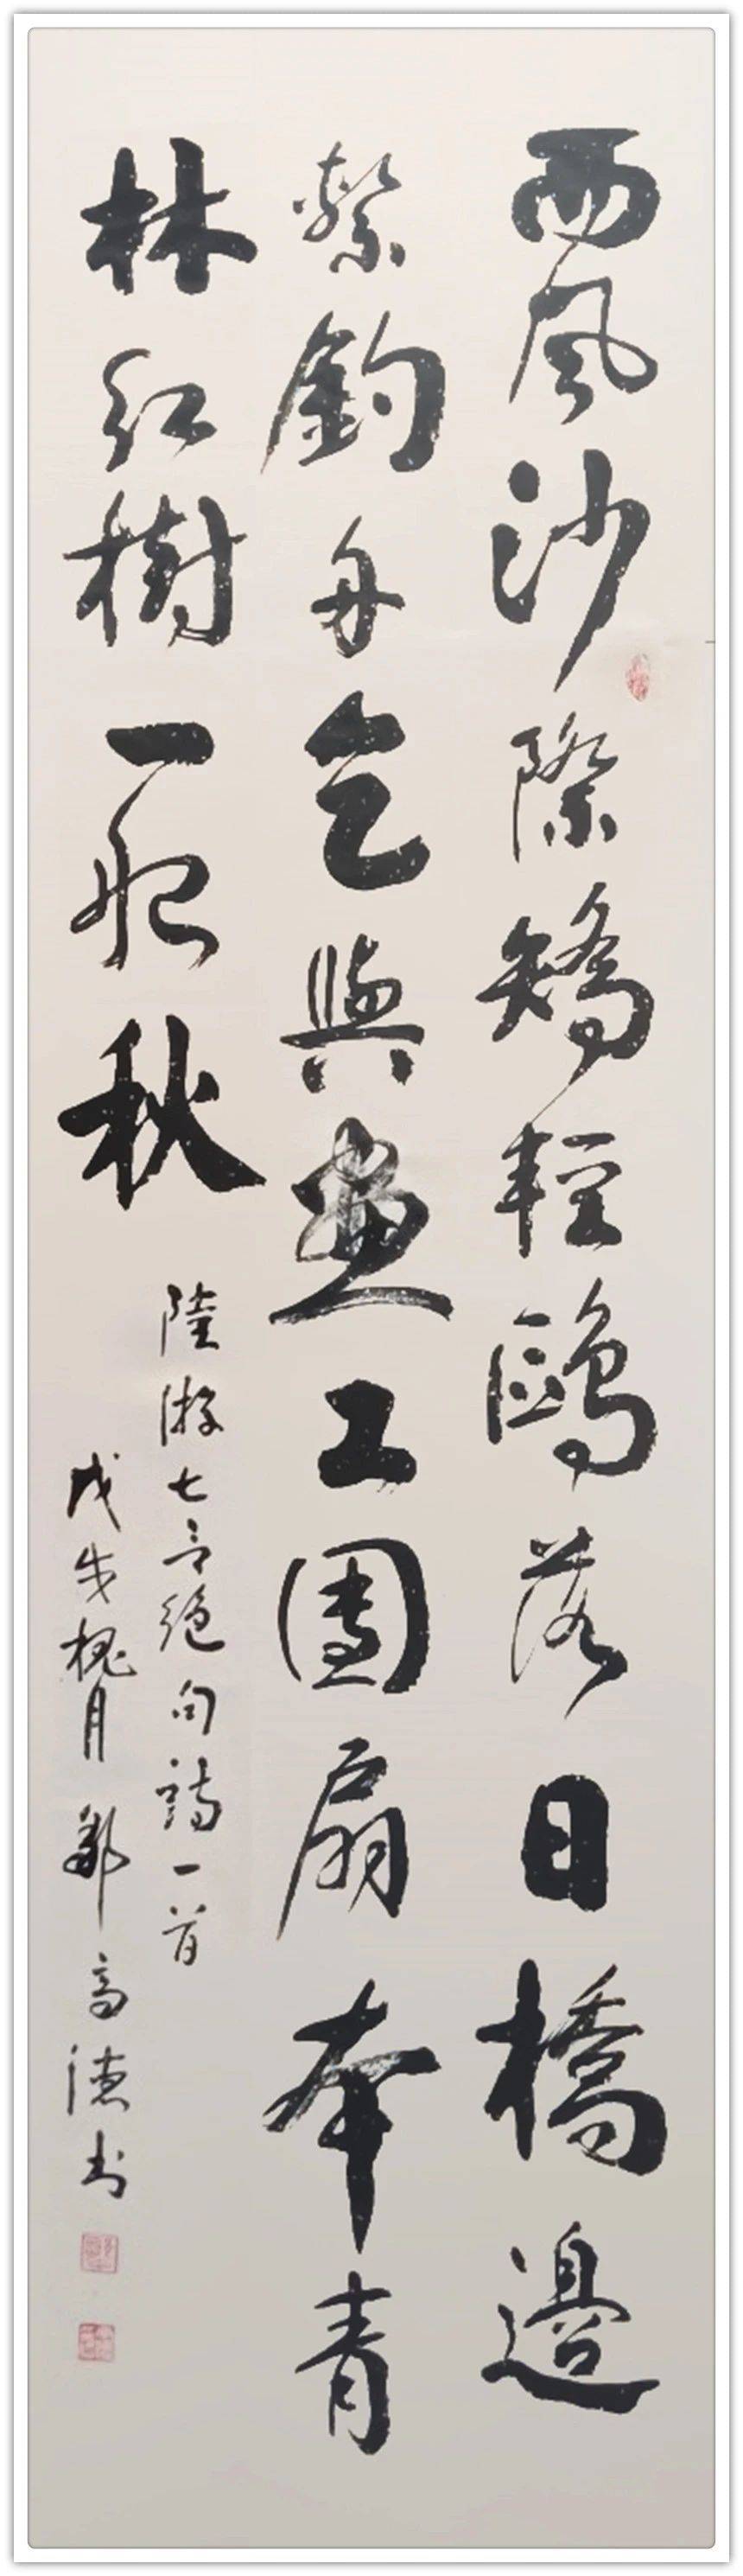 西風沙際矯輕鷗落日橋邉
繫釣舟乞與畫工團扇本青
林紅樹一般秋
陸游七言絕句詩一首
戊戌槐月鄭高德书